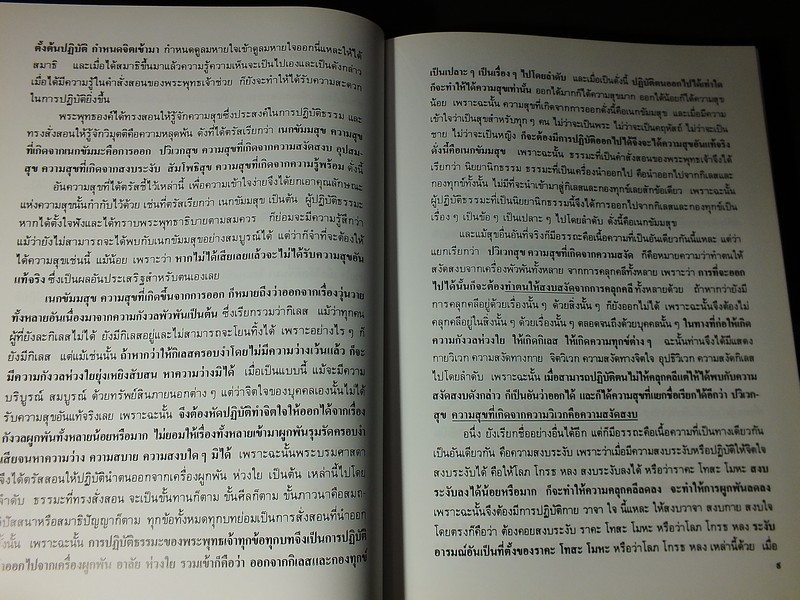 ตั้งต้นปฏิบัติ กำหนดจิตเข้ามา กำหนดดูลมหายใจเข้าดูลมหายใจออกนี่แหละให้ได้
สมาธิ และเมื่อได้สมาธิขึ้นมาแล้วความรู้ความเห็นจะเป็นไปเองและเป็นดังกล่าว
เมื่อได้มีความรู้ในคำสั่งสอนของพระพุทธเจ้าช่วย ก็ยิ่งจะทำให้ได้รับความสะดวก
ในการปฏิบัติยิ่งขึ้น
พระพุทธองค์ได้ทรงสอนให้รู้จักความสุขซึ่งประสงค์ในการปฏิบัติธรรม และ
ทรงสั่งสอนให้รู้จักวิมุตติคือความหลุดพ้น ดังที่ได้ตรัสเรียกว่า เนกขัมมสุข ความสุข
ที่เกิดจากเนกขัมมะคือการออก ปวิเวกสุข ความสุขที่เกิดจากความสงัดสงบ อุปสม-
สุข ความสุขที่เกิดจากสงบระงับ สัมโพธิสุข ความสุขที่เกิดจากความรู้พร้อม ดังนี้
อันความสุขที่ได้ตรัสชี้ไว้เหล่านี้ เพื่อความเข้าใจง่ายจึงได้ยกเอาคุณลักษณะ
แห่งความสุขนั้นกำกับไว้ด้วย เช่นที่ตรัสเรียกว่า เนกขัมมสุข เป็นต้น ผู้ปฏิบัติธรรมะ
หากได้ตั้งใจฟังและได้ทราบพระพุทธาธิบายตามสมควร ก็ย่อมจะมีความรู้สึกว่า
แม้ว่ายังไม่สามารถจะได้พบกับเนกขัมมสุขอย่างสมบูรณ์ได้ แต่ว่าก็จำที่จะต้องให้
ได้ความสุขเช่นนี้ แม้น้อย เพราะว่า หากไม่ได้เสียเลยแล้วจะไม่ได้รับความสุขอัน
แท้จริง ซึ่งเป็นผลอันประเสริฐสำหรับตนเองเลย
เนกขัมมสุข ความสุขที่เกิดขึ้นจากการออก ก็หมายถึงว่าออกจากเรื่องวุ่นวาย
ทั้งหลายอันเนื่องมาจากความกังวลพัวพันเป็นต้น ซึ่งเรียกรวมว่ากิเลส แม้ว่าทุกคน
ผู้ที่ยังละกิเลสไม่ได้ ยังมีกิเลสอยู่และไม่สามารถจะโยนทิ้งได้ เพราะอย่างไร ๆ ก็
ยังมีกิเลส แต่แม้เช่นนั้น ถ้าหากว่าให้กิเลสครอบงำโดยไม่มีความว่างเว้นแล้ว ก็จะ
มีความกังวลห่วงใยยุ่งเหยิงสับสน หาความว่างมิได้ เมื่อเป็นแบบนี้ แม้จะมีความ
บริบูรณ์ สมบูรณ์ ด้วยทรัพย์สินภายนอกต่าง ๆ แต่ว่าจิตใจของบุคคลเองนั้นไม่ได้
รับความสุขอันแท้จริงเลย เพราะฉะนั้น จึงต้องหัดปฏิบัติทำจิตใจให้ออกได้จากเรื่อง
กังวลผูกพันทั้งหลายน้อยหรือมาก ไม่ยอมให้เรื่องทั้งหลายเข้ามาผูกพันรุมรัดครอบงำ
เสียจนหาความว่าง ความสบาย ความสงบใด ๆ มิได้ เพราะฉะนั้นพระบรมศาสดา
จึงได้ตรัสสอนให้ปฏิบัตินำตนออกจากเครื่องผูกพัน ห่วงใย เป็นต้น เหล่านี้ไปโดย
ลำดับ ธรรมะที่ทรงสั่งสอน จะเป็นขั้นทานก็ตาม ขั้นศีลก็ตาม ขั้นภาวนาคือสมถ-
วิปัสสนาหรือสมาธิปัญญาก็ตาม ทุกข้อทั้งหมดทุกบทย่อมเป็นการสั่งสอนที่นำออก
ทั้งนั้น เพราะฉะนั้น การปฏิบัติธรรมะของพระพุทธเจ้าทุกข้อทุกบทจึงเป็นการปฏิบัติ
นำออกไปจากเครื่องผูกพัน อาลัย ห่วงใย รวมเข้าก็คือว่า ออกจากกิเลสและกองทุกข์
เป็นเปลาะ ๆ เป็นเรื่อง ๆ ไปโดยลำดับ และเมื่อเป็นดั่งนี้ ปฏิบัติตนออกไปได้เท่าใด
ก็จะทำให้ได้ความสุขเท่านั้น ออกได้มากก็ได้ความสุขมาก ออกได้น้อยก็ได้ความสุข
น้อย เพราะฉะนั้น ความสุขที่เกิดจากการออกดั่งนี้คือเนกขัมมสุข และเมื่อมีความ
เข้าใจว่าเป็นสุขสำหรับทุก ๆ คน ไม่ว่าจะเป็นพระ ไม่ว่าจะเป็นคฤหัสถ์ ไม่ว่าจะเป็น
ชาย ไม่ว่าจะเป็นหญิง ก็จะต้องมีการปฏิบัติออกไปได้จึงจะได้ความสุขอันแท้จริง
ดั่งนี้คือเนกขัมมสุข เพราะฉะนั้น ธรรมะที่เป็นคำสั่งสอนของพระพุทธเจ้าจึงได้
เรียกว่า นิยยานิกธรรม ธรรมะที่เป็นเครื่องนำออกไป คือนำออกไปจากกิเลสและ
กองทุกข์ทั้งนั้น ไม่มีที่จะนำเข้ามาสู่กิเลสและกองทุกข์เลยสักข้อเดียว เพราะฉะนั้น
ผู้ปฏิบัติธรรมะที่เป็นนิยยานิกธรรมนี้จึงได้การออกไปจากกิเลสและกองทุกข์เป็น
เรื่อง ๆ เป็นข้อ ๆ เป็นเปลาะ ๆ ไปโดยลำดับ ดั่งนี้คือเนกขัมมสุข
และแม้สุขอื่นอันที่จริงก็มีอรรถะคือเนื้อความที่เป็นอันเดียวกันนี้แหละ แต่ว่า
แยกเรียกว่า ปวิเวกสุข ความสุขที่เกิดจากความสงัด ก็คือหมายความว่าทำตนให้
สงัดสงบจากเครื่องพัวพันทั้งหลาย จากการคลุกคลีทั้งหลาย เพราะว่า การที่จะออก
ไปได้นั้นก็จะต้องทำตนให้สงบสงัดจากการคลุกคลีทั้งหลายด้วย ถ้าหากว่ายังมี
การคลุกคลีอยู่ด้วยเรื่องนั้น ๆ ด้วยสิ่งนั้น ๆ ก็ยังออกไม่ได้ เพราะฉะนั้นจึงต้องไม่
คลุกคลีอยู่ในสิ่งนั้น ๆ ด้วยเรื่องนั้น ๆ ตลอดจนถึงด้วยบุคคลนั้น ๆ ในทางที่ก่อให้เกิด
ความกังวลห่วงใย ให้เกิดกิเลส ให้เกิดความทุกข์ต่าง ๆ ฉะนั้นท่านจึงได้มีแสดง
กายวิเวก ความสงัดทางกาย จิตวิเวก ความสงัดทางจิตใจ อุปธิวิเวก ความสงัดกิเลส
ไปโดยลำดับ เพราะฉะนั้น เมื่อสามารถปฏิบัติตนไม่ให้คลุกคลีแต่ให้ได้พบกับความ
สงัดสงบดังกล่าว ก็เป็นอันว่าออกได้ และก็ได้ความสุขที่แยกชื่อเรียกได้อีกว่า ปวิเวก-
สุข ความสุขที่เกิดจากความวิเวกคือความสงัดสงบ
อนึ่ง ยังเรียกชื่ออย่างอื่นได้อีก แต่ก็มีอรรถะคือเนื้อความที่เป็นทางเดียวกัน
เป็นอันเดียวกัน คือความสงบระงับ เพราะว่าเมื่อมีความสงบระงับหรือปฏิบัติให้จิตใจ
สงบระงับได้ คือให้โลภ โกรธ หลง สงบระงับลงได้ หรือว่าราคะ โทสะ โมหะ สงบ
ระงับลงได้น้อยหรือมาก ก็จะทำให้ความคลุกคลีลดลง จะทำให้การผูกพันลดลง
เพราะฉะนั้นจึงต้องมีการปฏิบัติกาย วาจา ใจ นี้แหละ ให้สงบวาจา สงบกาย สงบใจ
โดยตรงก็คือว่า ต้องคอยสงบระงับ ราคะ โทสะ โมหะ หรือว่าโลภ โกรธ หลง ระงับ
อารมณ์อันเป็นที่ตั้งของราคะ โทสะ โมหะ หรือว่าโลภ โกรธ หลง เหล่านี้ด้วย เมื่อ